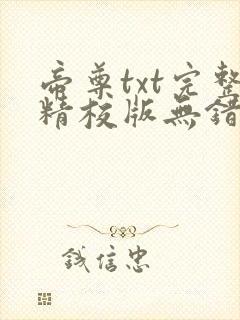 帝尊txt完整
精校版無錯
钱信忠